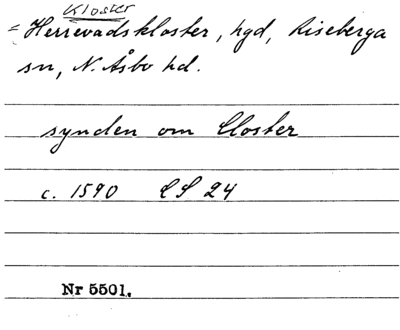 Kloster
= Herrevadskloster, hgd, Riseberga
sn, N. Åsbo hd.
synden om Closter
c. 1590 LS 24
Nr 5501.